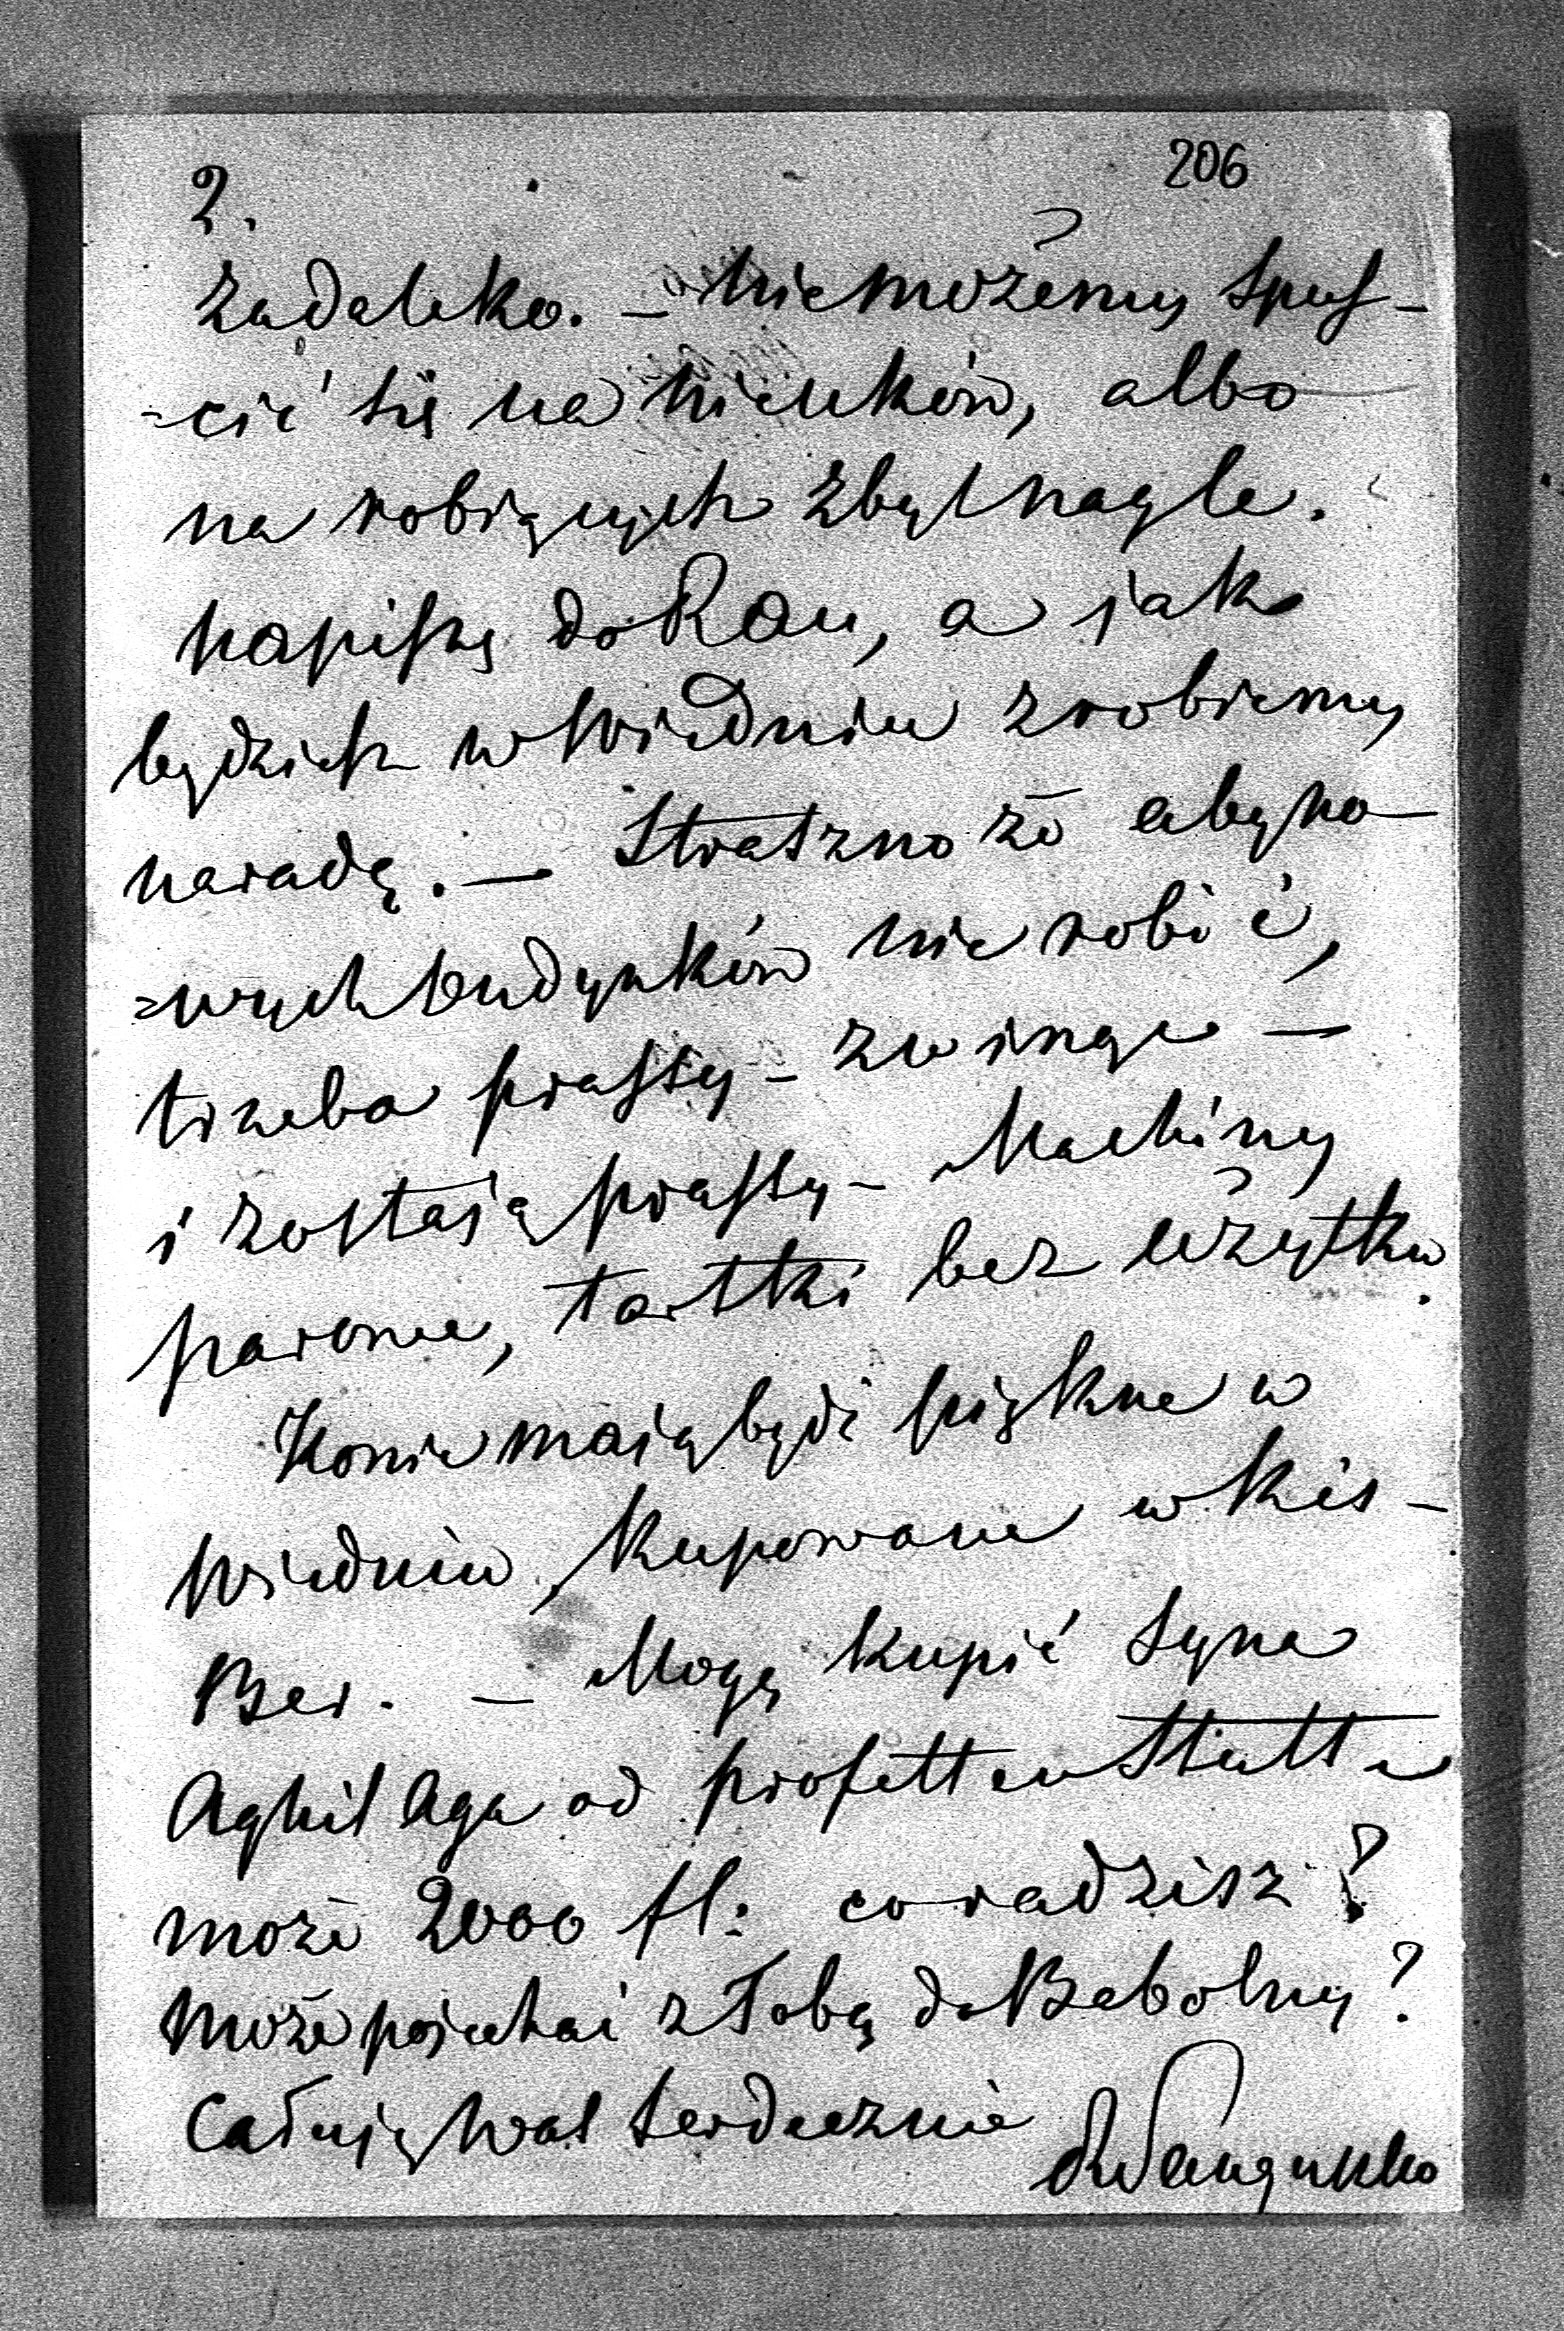 206
2.
zadaleko. — Niemożemy spuś-
-cić się na nieuków, albo
na robiących zbyt nagle.
Napiszę do Rau, a jak
będziesz w Wiedniu zrobiemy
naradę. — Straszno że aby no-
=wych budynków nie robić,
trzeba prassy - zwinąć —
i zostają prassy - Machiny
parowe, tartki bez użytku.
Konie mają bydź piękne w
Wiedniu, kupowane w Kis-
Ber. — Mogę kupić syna
Aghil Aga od
może 2000 fl: co radzisz?
Może pojechać z Tobą do Babolny?
Całuję Was serdecznie
RSanguszko